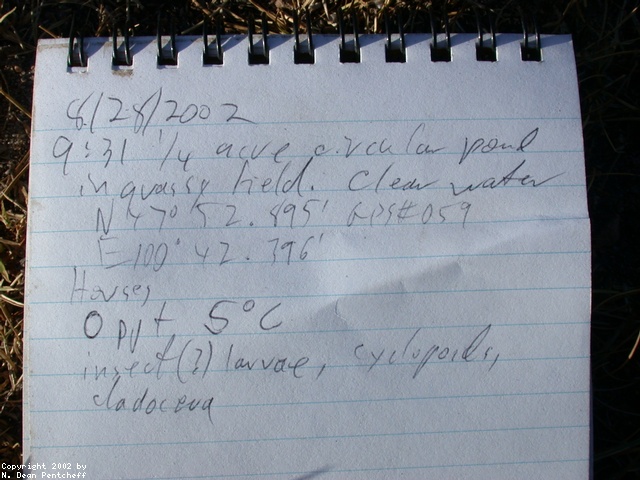 8/28/2002
9:31 1/4 acre circular pond
in grassy field. Clear water
N 47° 52.895' GPS# 059
E 100° 42.396'
Horses,
0 ppt, 5°C
insect(?) larvae, cyclopoids,
cladocera
Copyright 2002 by
N. Dean Pentcheff